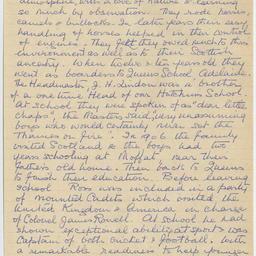 atmosphere, with a love of nature & learning
so much by observation. They rode horses,
camels & bullocks. In later years their easy
handling of horses helped in their control
of enemies. They felt they owed much to this
environment as well as to their Scottish
ancestry. When twelve & ten years old they
went as boarders to Queens School Adelaide.
The Headmaster, J. H. Lindon was a brother
of a one time Head of our Hutchins School.
At school they were spoken of as "dear little
chaps", the Masters said, "very unassuming
boys who would certainly never set the
Thames on fire". In 1906 the family
visited Scotland & the boys had two
years schooling at Moffat near their
fathers old home. Then back to Queens
to finish their education. Before leaving
school Ross was included in a party
of mounted Cadets which visited the
United Kingdom & America in charge
of Colonel James Rowell. At school he had
shown exceptional ability at sports was
Captain of both cricket & football. With
a remarkable readiness to help younger